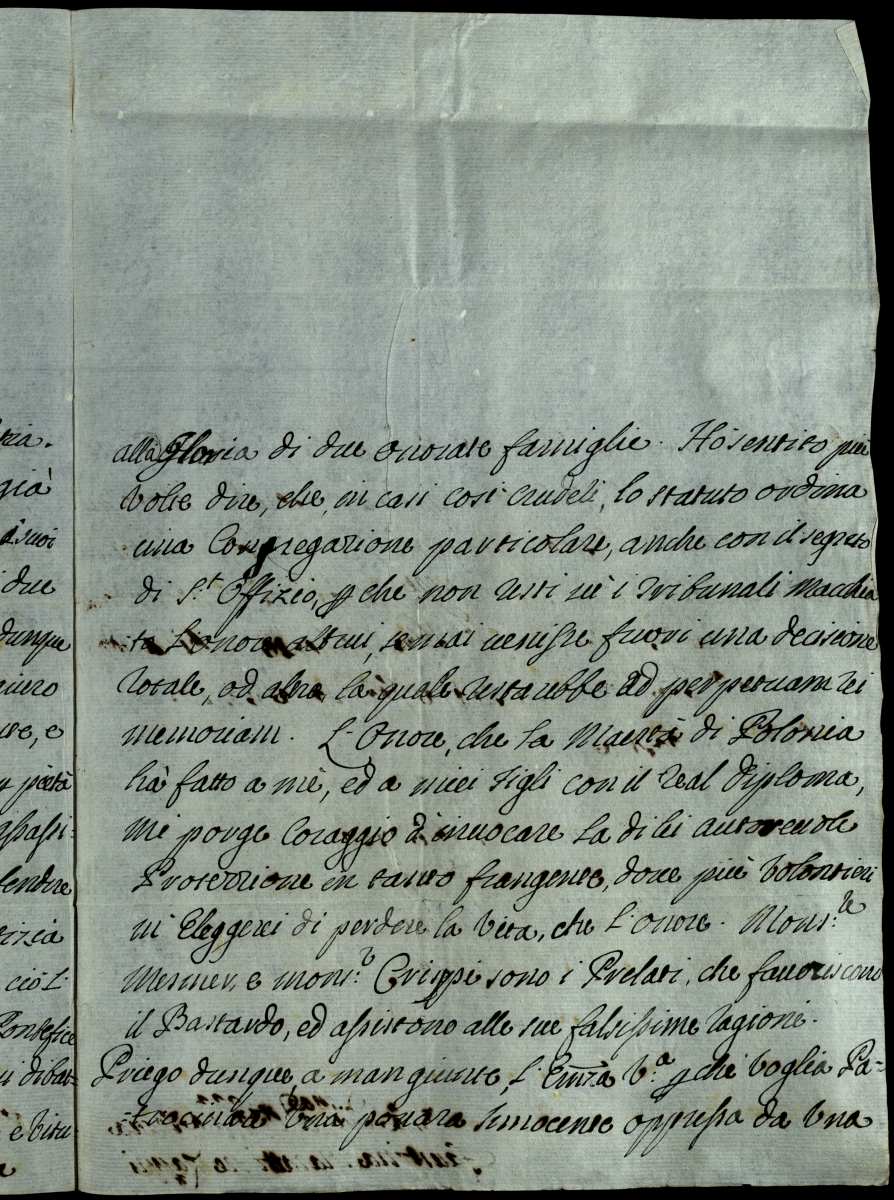 tia.
già
a suoi
due
dunque
e, e
pietà
assassi:
tizia
ciò L'
Pontefice
i dibat:
e vitu
alla Gloria di due onorate famiglie. Hò sentito più
volte dire, che in casi così crudeli, lo statuto ordina
una Congregazione particolare, anche con il segreto
di S.t Offizio, p che non resti nè i Tribunali macchia
to L'onore altrui, se mai venisse fuori una decisione
Rotale, od altra, la quale restarebbe ad perpetuam rei
memoriam. L'Onore, che la Maestà di Polonia
hà fatto a mè, ed a miei Figli con il Real Diploma,
mi porge Coraggio d'invocare la di lei autorevole
Protezzione in tanto frangente, dove più volontieri
m'Eleggerei di perdere la Vita, che L'onore. Mons.re
e Mons.r Crispi sono i Prelati, che favoriscono
il Bastardo, ed assistono alle sue falsissime ragioni.
Priego dunque, a man giunte, L'Emza V.a p che voglia Pa=
una povara Innocente oppressa da Una